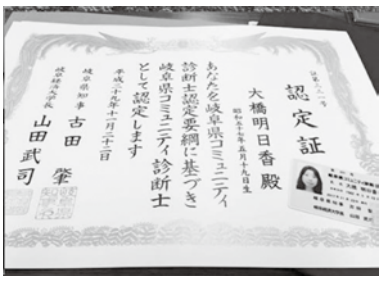 証第三三一号
認定証
大橋明日香殿
昭和五十七年五月十九日生
あなたを岐阜県コミュニティ
診断士認定要綱に基づき
岐阜県コミュニティ診断士
として認定します
平成二十九年十一月二十二日
岐阜県知事 古田肇
岐阜経済大学長 山田武司